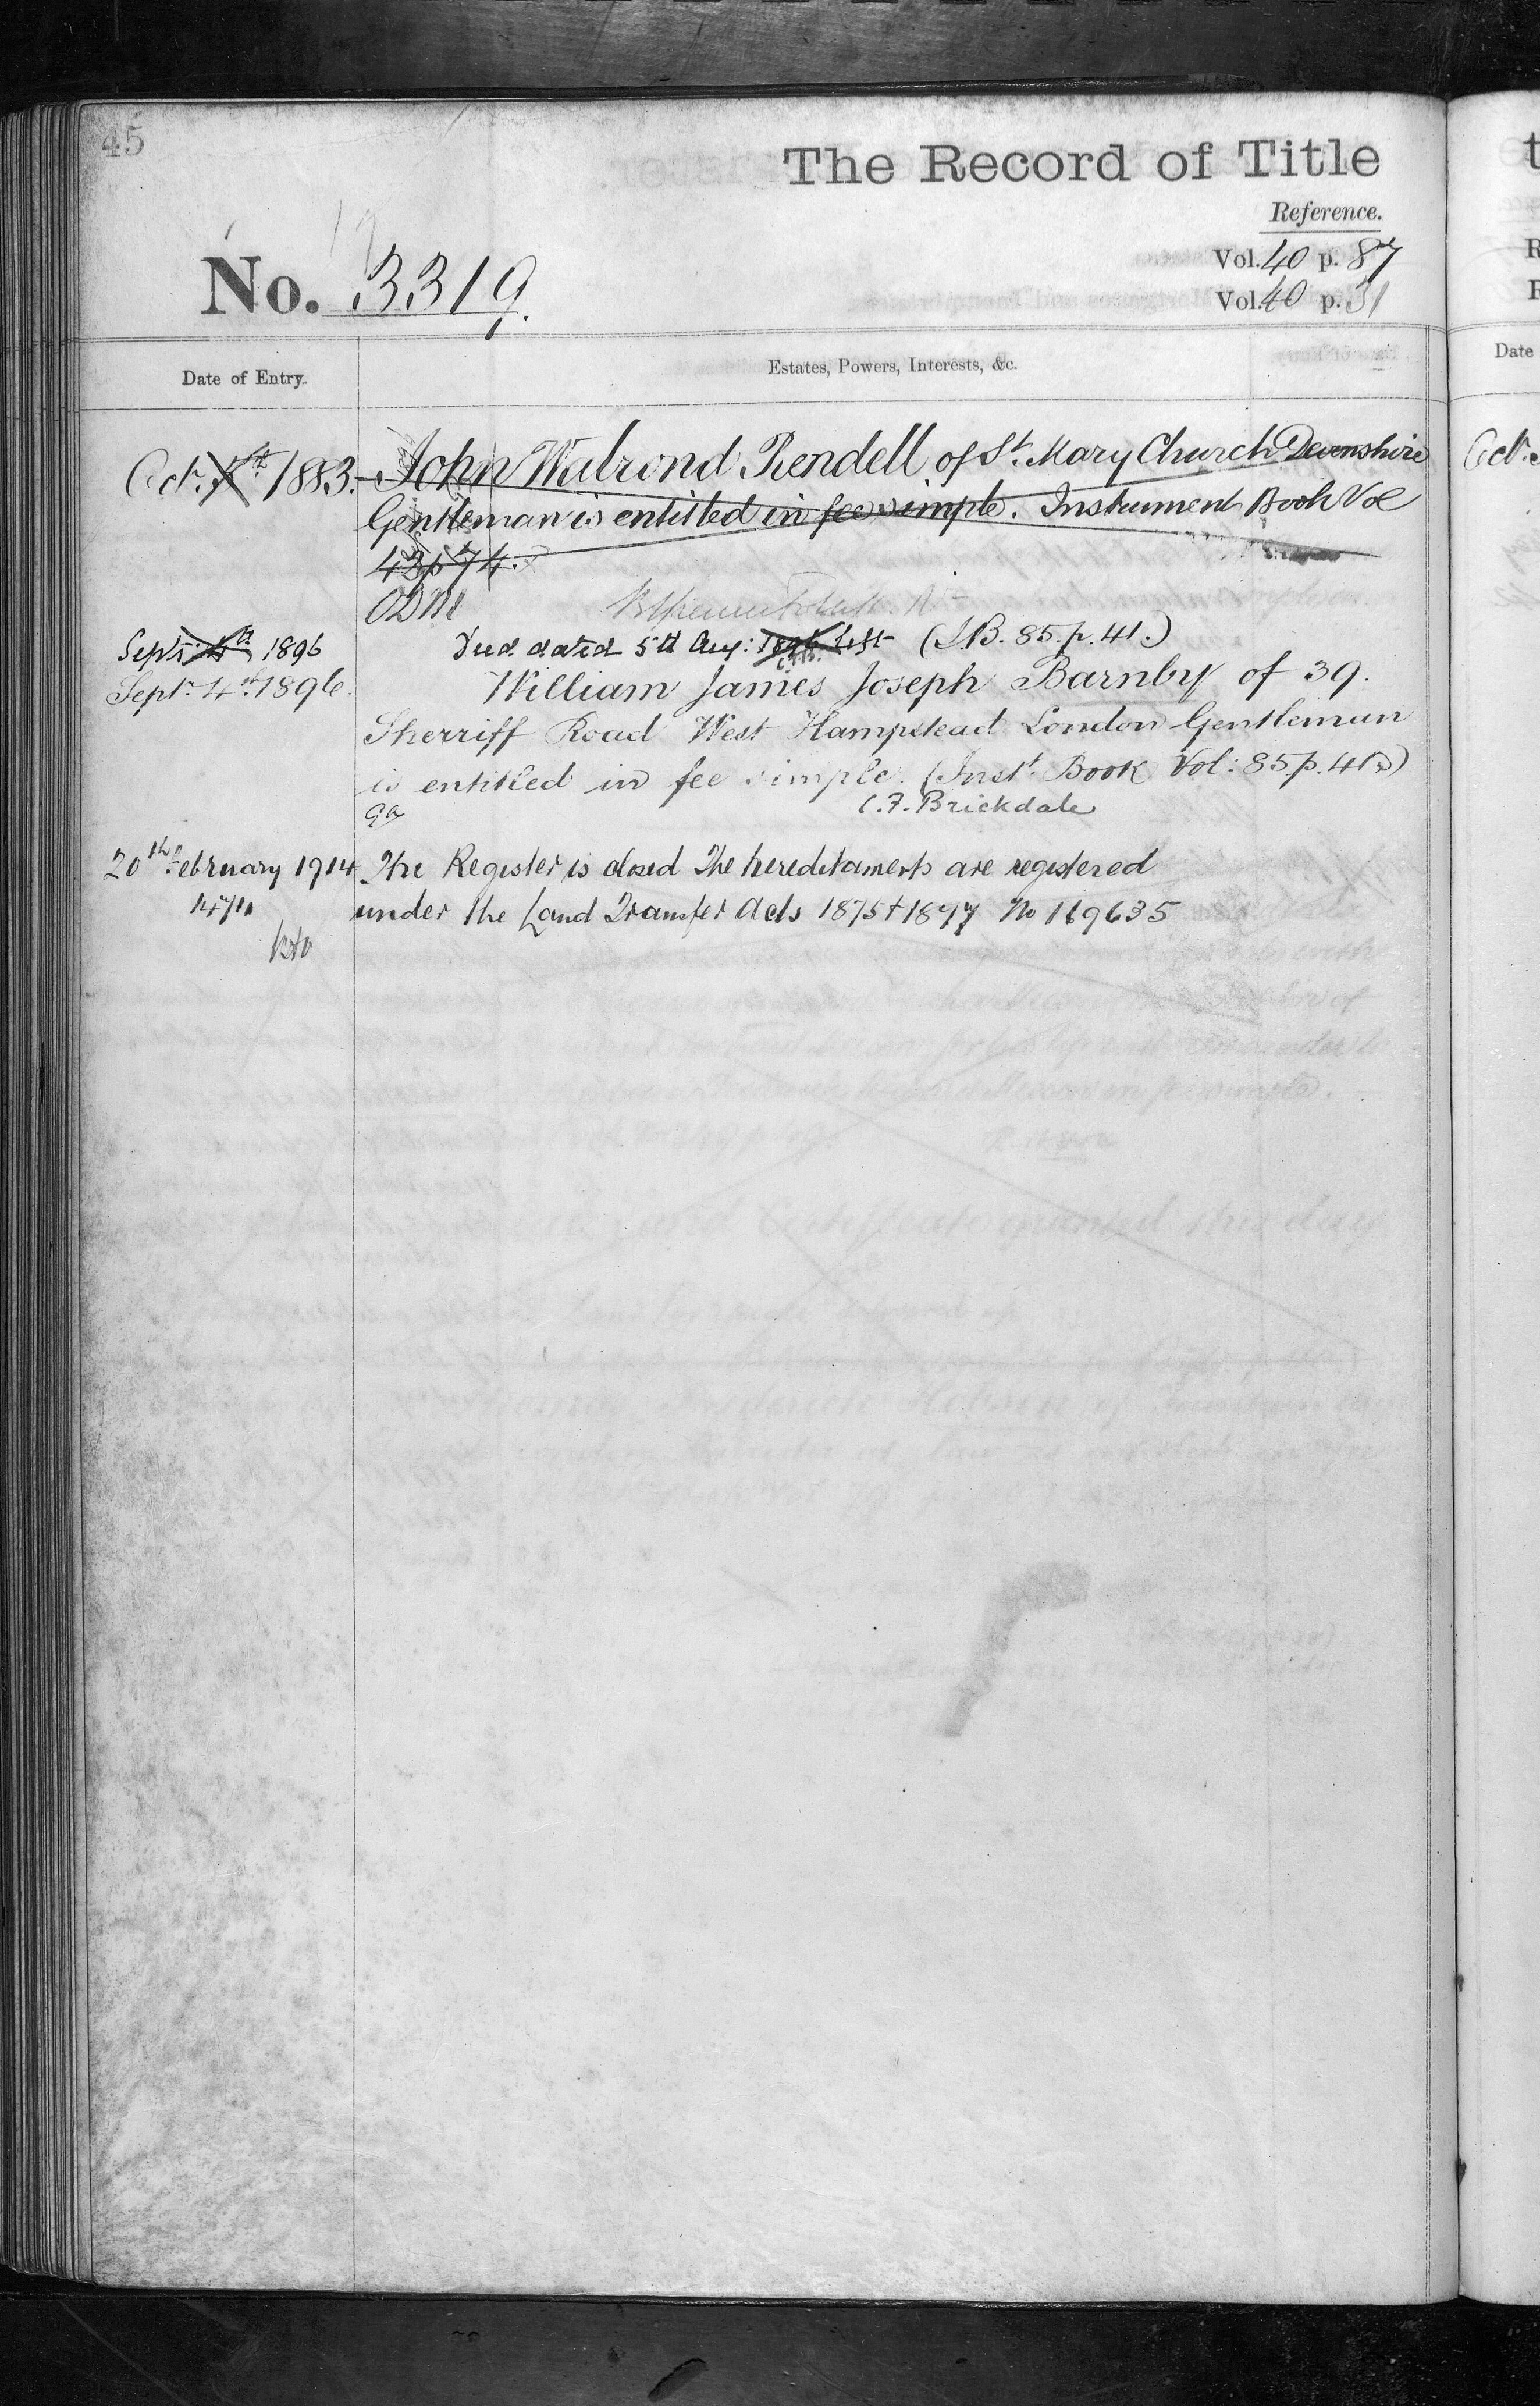 45
The Record of Title
Reference.
Vol. 40 p. 87
No. 3319.
Vol. 40 p. 31
Date of Entry.
Estates, Powers, Interests, &c.
Date
Oct. 1883. John Walrond Rendell of St. Mary Church Devonshire
Gentleman is entitled in fee simple. Instrument Book Vol
43 p 74.
ODM
Sept. 4th 1896 Deed dated 5th Aug: 1896 (I.B. 85. p. 41.)
Sept. 4th 1896. William James Joseph Barnby of 39.
Sherriff Road West Hampstead London Gentleman
is entitled in fee simple. (Inst. Book Vol: 85. p. 41.)
C.F. Brickdale
20th February 1914 The Register is closed The hereditaments are registered
under the Land Transfer Acts 1875 + 1897 No 169635